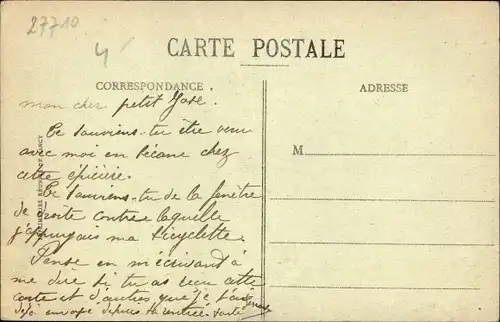 27710
4
CARTE POSTALE
CORRESPONDANCE.
ADRESSE
mon cher petit José.
Te souviens-tu être venu
avec moi en bécane chez
cette épicière.
Te souviens-tu de la fenêtre
de droite contre laquelle
j'appuyais ma bicyclette.
Pense en m'écrivant à
me dire si tu as reçu cette
carte et d'autres que je t'ai
déjà envoyé depuis ta rentrée.
M
RÉUNIES NANCY